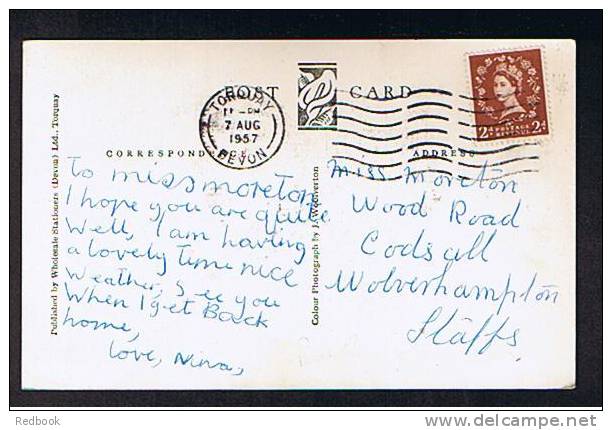 POST CARD
TORQUAY
7 AUG
1957
DEVON
2D POSTAGE REVENUE 2D
CORRESPONDENCE
ADDRESS
To miss moreton
I hope you are quite
Well, I am having
a lovely time nice
weather, see you
When I get Back
home,
love, Nina,
Miss Moreton
Wood Road
Codsall
Wolverhampton
Staffs
Published by Wholesale Stationers (Devon) Ltd., Torquay
Colour Photograph by J. Woolverton
Redbook
delcampe.net